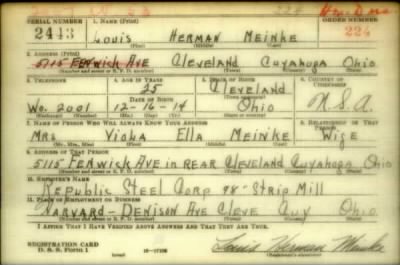 SERIAL NUMBER 1. NAME (Print) ORDER NUMBER
2443 Louis HERMAN MEINKE 224
(First) (Middle) (Last)
2. ADDRESS (Print)
5115 FENWICK AVE Cleveland CUYAHOGA Ohio
(Number and street or R. F. D. number) (Town) (County) (State)
3. TELEPHONE 4. AGE IN YEARS 5. PLACE OF BIRTH 6. COUNTRY OF CITIZENSHIP
25 Cleveland
DATE OF BIRTH
Wo. 2001 12-16-14 Ohio U.S.A.
7. NAME OF PERSON WHO WILL ALWAYS KNOW YOUR ADDRESS 8. RELATIONSHIP OF THAT PERSON
MRS Viola Ella MEINKE Wife
(Mr., Mrs., Miss) (First) (Middle) (Last)
9. ADDRESS OF THAT PERSON
5115 FENWICK AVE in REAR Cleveland Cuyahoga Ohio
(Number and street or R. F. D. number) (Town) (County) (State)
10. EMPLOYER'S NAME
REPublic Steel Corp 98"-Strip Mill
11. PLACE OF EMPLOYMENT OR BUSINESS
HARVARD-DENISON AVE Cleve Cuy Ohio
(Number and street or R. F. D. number) (Town) (County) (State)
I AFFIRM THAT I HAVE VERIFIED ABOVE ANSWERS AND THAT THEY ARE TRUE.
REGISTRATION CARD
D. S. S. Form 1
Louis Herman Meinke
(Registrant's signature)